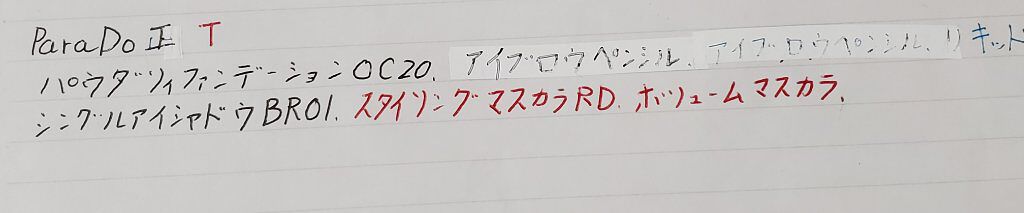 ParaDo 正 T
パウダリィファンデーションOC20. アイブロウペンシル、アイブロウペンシル、リキッド
シングルアイシャドウBR01. スタイリングマスカラRD. ボリュームマスカラ.